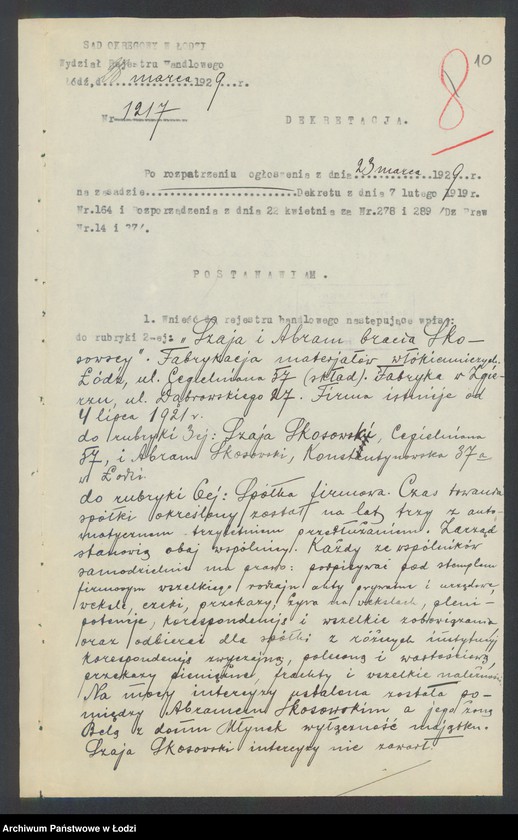 SAD OKRĘGOWY W ŁODZI
Wydział Rejestru Handlowego
Łódź, d. marca 1929 r.
8 10
Nr 1217
DEKRETACJA.
Po rozpatrzeniu ogłoszenia z dnia 23 marca 1929 r.
na zasadzie Dekretu z dnia 7 lutego 1919 r.
Nr.164 i Rozporządzenia z dnia 22 kwietnia za Nr.278 i 289 /Dz Praw
Nr.14 i 37/.
POSTANAWIAM.
1. Wnieść do rejestru handlowego następujące wpisy:
do rubryki 2-ej: „Szaja i Abram bracia Sko-
sowscy". Fabrykacja materjałów włókienniczych.
Łódź, ul. Cegielniana 57 (skład). Fabryka w Zgie-
rzu, ul. Dąbrowskiego 27. Firma istnieje od
4 lipca 1921 r.
do rubryki 3ej: Szaja Skosowski, Cegielniana
57, i Abram Skosowski, Konstantynowska 37a
w Łodzi.
do rubryki 6ej: Spółka firmowa. Czas trwania
spółki określony został na lat trzy z auto-
matycznem trzyletniem przedłużaniem. Zarząd
stanowią obaj wspólnicy. Każdy ze wspólników
samodzielnie ma prawo: podpisywać pod stemplem
firmowym wszelkiego rodzaju akty prywatne i urzędowe,
weksle, czeki, przekazy, żyra na wekslach, pleni-
potencje, korespondencję i wszelkie zobowiązania,
oraz odbierać dla spółki z różnych instytucji
korespondencję zwyczajną, poleconą i wartościową,
przekazy pieniężne, frachty i wszelkie należności.
Na mocy intercyzy ustalona została po-
między Abramem Skosowskim a jego żoną
Belą z domu Młynek wyłączność majątku.
Szaja Skosowski intercyzy nie zawarł.
Archiwum Państwowe w Łodzi